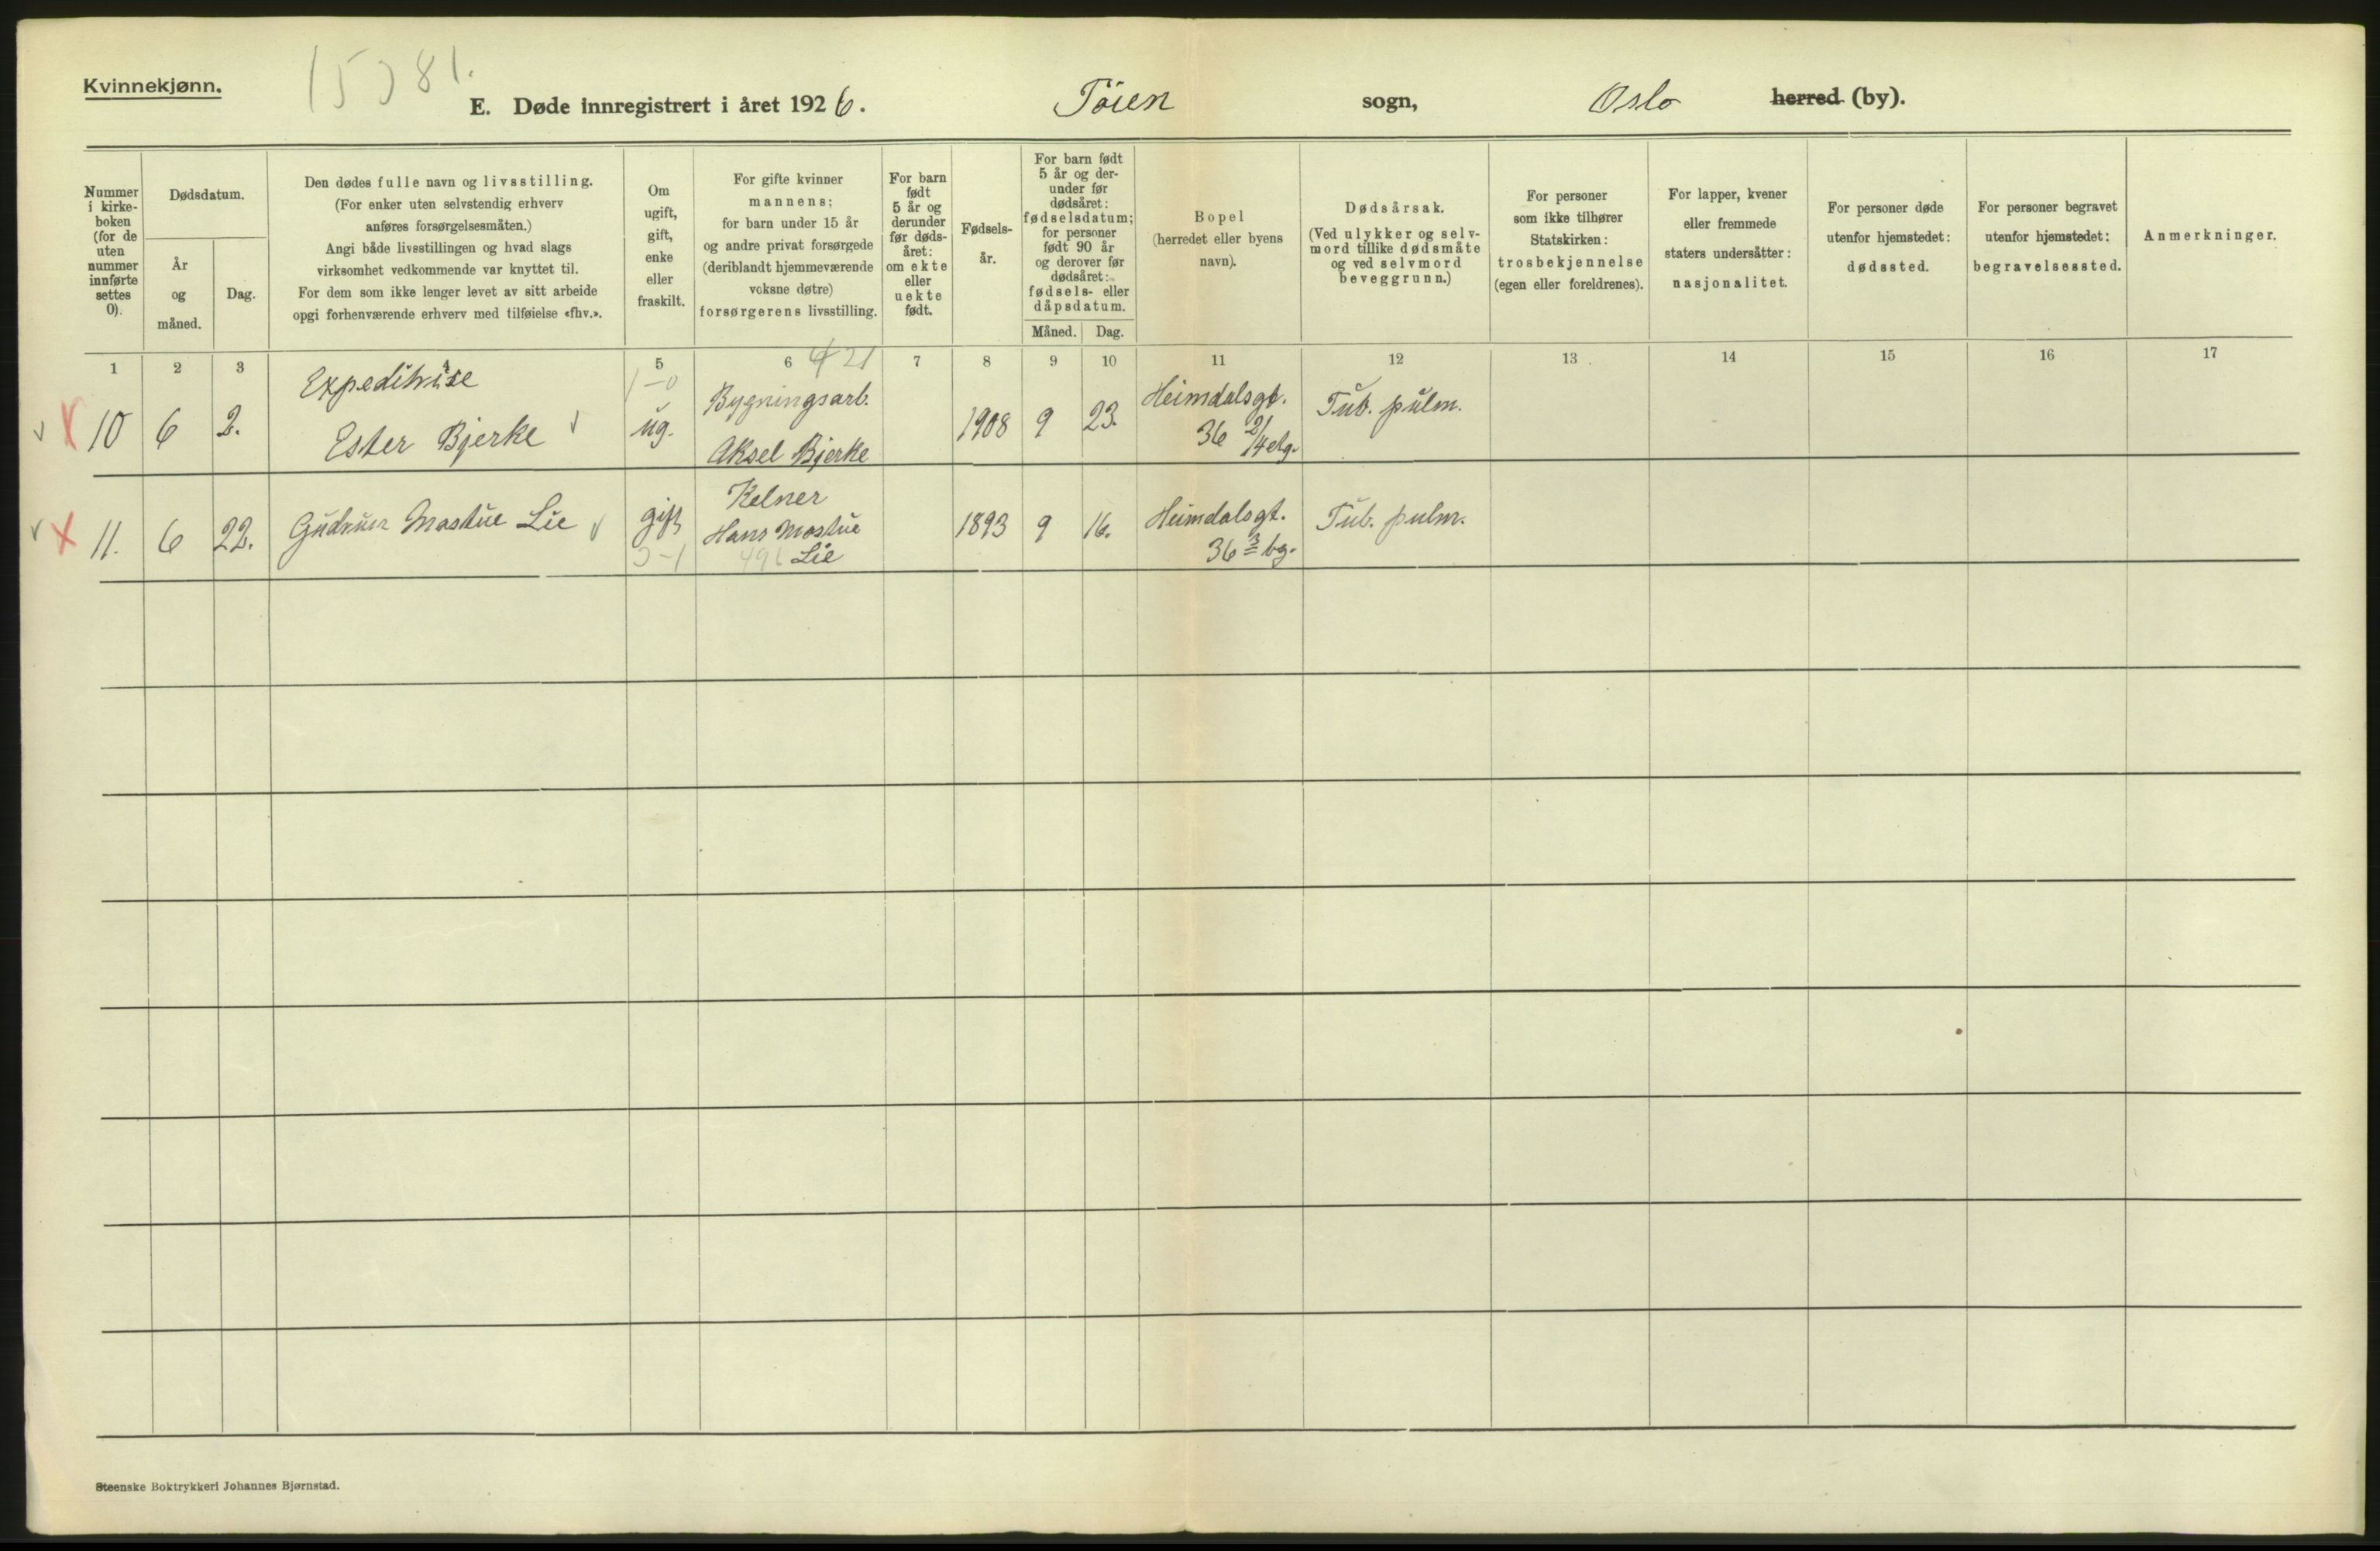 Kvinnekjønn.
E. Døde innregistrert i året 1926. Töien sogn, Oslo herred (by).
Nummer
i kirke-
boken
(for de
uten
nummer
innførte
settes
0).
Dødsdatum.
År
og
måned.
Dag.
Den dødes fulle navn og livsstilling.
(For enker uten selvstendig erhverv
anføres forsørgelsesmåten.)
Angi både livsstillingen og hvad slags
virksomhet vedkommende var knyttet til.
For dem som ikke lenger levet av sitt arbeide
opgi forhenværende erhverv med tilføielse «fhv.».
Om
ugift,
gift,
enke
eller
fraskilt.
For gifte kvinner
mannens;
for barn under 15 år
og andre privat forsørgede
(deriblandt hjemmeværende
voksne døtre)
forsørgerens livsstilling.
For barn
født
5 år og
derunder
før døds-
året:
om ekte
eller
uekte
født.
Fødsels-
år.
For barn født
5 år og der-
under før
dødsåret:
fødselsdatum;
for personer
født 90 år
og derover før
dødsåret:
fødsels- eller
dåpsdatum.
Måned. Dag.
Bopel
(herredet eller byens
navn).
Dødsårsak.
(Ved ulykker og selv-
mord tillike dødsmåte
og ved selvmord
beveggrunn.)
For personer
som ikke tilhører
Statskirken:
trosbekjennelse
(egen eller foreldrenes).
For lapper, kvener
eller fremmede
staters undersåtter:
nasjonalitet.
For personer døde
utenfor hjemstedet:
dødssted.
For personer begravet
utenfor hjemstedet:
begravelsessted.
Anmerkninger.
1 2 3 5 6 7 8 9 10 11 12 13 14 15 16 17
421
1-0
Bygningsarb. Heimdalsgt.
10 6 2. Ester Bjerke ug. Aksel Bjerke 1908 9 23. 36 2/4 etg. Tub. pulm.
Kelner
11. 6 22. Gudrun Mastue Lie gift Hans Mostue 1893 9 16. Heimdalsgt. Tub. pulm.
Lie 36 3 bg.
Steenske Boktrykkeri Johannes Bjørnstad.